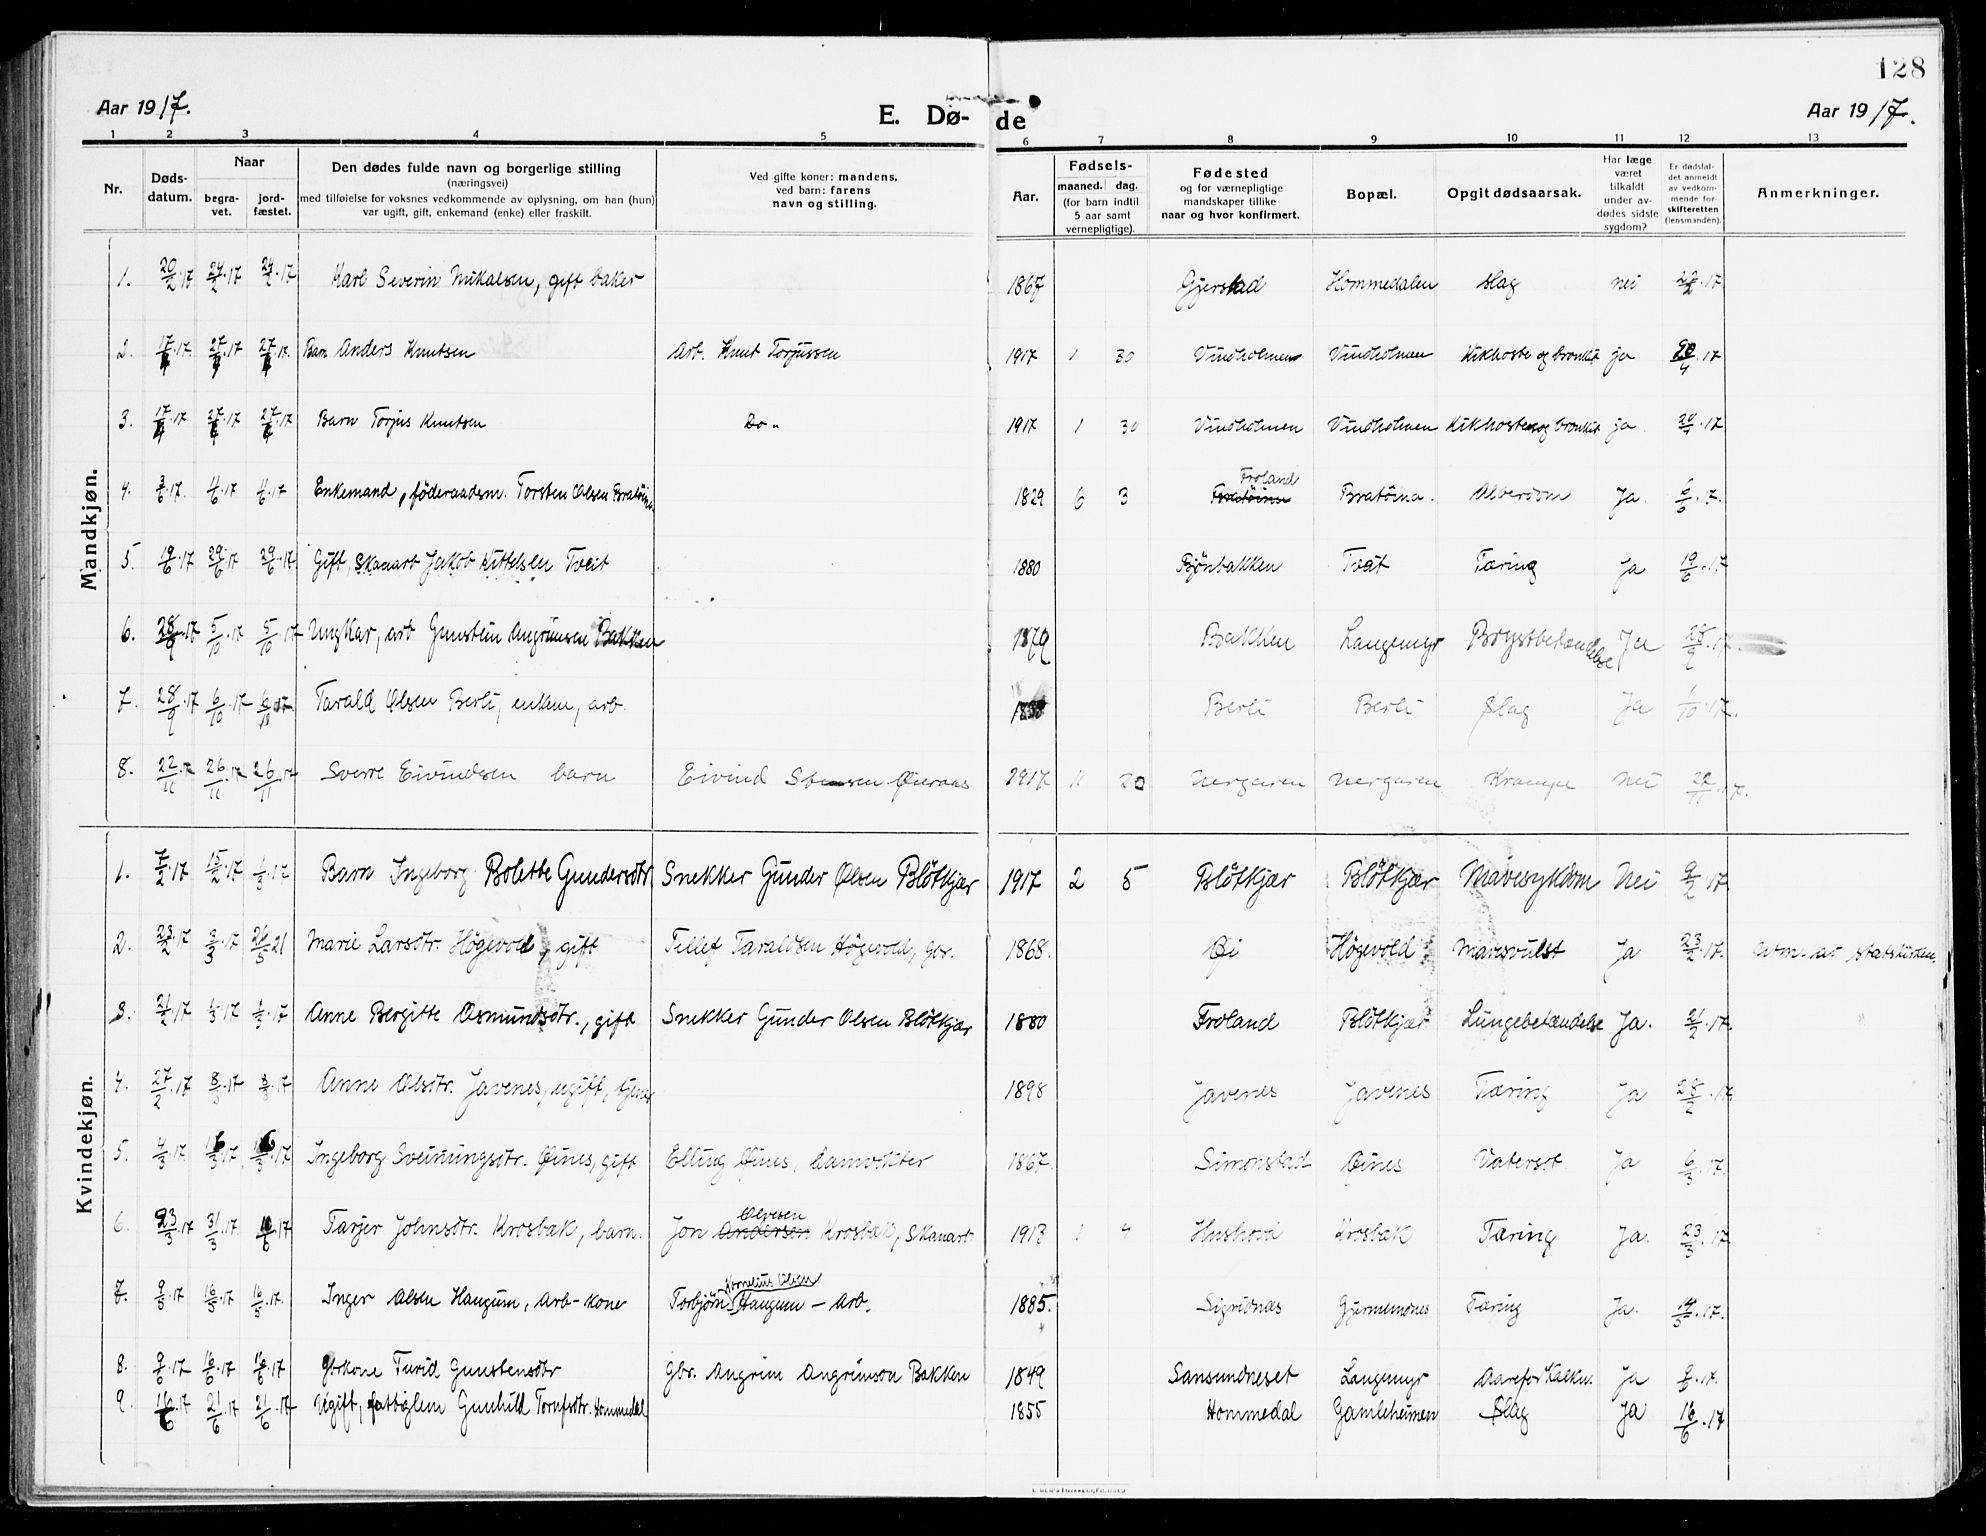 128
Aar 1917.
E. Døde
Aar 1917.
1 2 3 4 5 6 7 8 9 10 11 12 13
Nr.
Døds-datum.
Naar
begra-vet.
jord-fæstet.
Den dødes fulde navn og borgerlige stilling
(næringsvei)
med tilføielse for voksnes vedkommende av oplysning, om han (hun)
var ugift, gift, enkemand (enke) eller fraskilt.
Ved gifte koner: mandens,
ved barn: farens
navn og stilling.
Aar.
Fødsels-
maaned. dag.
(for barn indtil
5 aar samt
vernepligtige).
Fødested
og for værnepligtige
mandskaper tillike
naar og hvor konfirmert.
Bopæl.
Opgit dødsaarsak.
Har læge
været
tilkaldt
under av-
dødes sidste
sygdom?
Er dødsfal-
det anmeldt
av vedkom-
mende for
skifteretten
(lensmanden).
Anmerkninger.
Mandkjøn.
1. 20/2 17 24/2 17 24/2 17 Karl Severin Mikalsen, gift baker 1867 Gjerstad Hommedalen Slag nei 22/2 17
2. 17/4 17 27/4 17 27/4 17. Barn Anders Knutsen Arb. Knut Torjussen 1917 1 30 Vindholmen Vindholmen Kikhoste og bronkit ja 20/4 17
3. 17/4 17 27/4 17 27/4 17 Barn Torjus Knutsen Do " 1917 1 30 Vindholmen Vindholmen Kikhoste og bronkit ja 20/4 17
4. 3/6 17. 4/6 17 4/6 17 Enkemand, föderaadsm. Torsten Olsen Bratöina 1829 6 3 Froland Bratöina Bratöina. Alderdom Ja. 6/6 17.
5. 19/6 17 29/6 17 29/6 17 Gift, Skanarb Jakob Kittelsen Tveit 1880 Bjönbakken Tveit Tæring Ja 19/6 17
6. 28/9 17 5/10 17 5/10 17 Ungkar, arb Gunstein Angrimsen Bakken 1879 Bakken Langemyr Brystbetændelse Ja 28/9 17.
7. 28/9 17 6/10 17 6/10 17 Tarald Olsen Berli, enkem, arb. Berli Berli Slag Ja 1/10 17.
8. 22/11 17 26/11 17 26/11 17 Sverre Eivindsen barn Eivind Stensen Øieraas 1917 11 20 Nergaren Nergaren Krampe nei 22/11 17.
Kvindekjøn.
1. 7/2 17 15/2 17 1/3 17 Barn Ingeborg Bolette Gundersdtr. Snekker Gunder Olsen Blötkjær 1917 2 5 Blötkjær Blötkjær Mavesykdom Nei 9/2 17
2. 23/2 17 3/3 17 26/5 21 Marie Larsdtr. Högevold, gift Tellef Taraldsen Högevold, gbr. 1868. Øi Högevold Mavesvulst Ja 23/2 17. Utm. av statskirken.
3. 21/2 17 1/3 17 1/3 17 Anne Bergitte Osmundsdtr., gift Snekker Gunder Olsen Blötkjær 1880 Froland Blötkjær Lungebetændelse Ja. 21/2 17.
4. 27/2 17 8/3 17 8/3 17 Anne Olsdtr. Javenes, ugift, tjener 1898 Javenes Javenes Tæring Ja 28/2 17.
5. 4/3 17 16/3 17 16/3 17 Ingeborg Sveinungsdtr. Øines, gift Elling Øines, damvokter 1867. Simonstad Øines Vatersot Ja 6/3 17.
6. 23/3 17 31/3 17 10/6 17 Tarjer Johnsdtr. Krosbæk, barn. Jon Andersen Olvesen Krosbæk, Skanarb 1913 1 4 Hushovd Krosbæk Tæring Ja. 23/3 17.
7. 9/5 17 16/5 17 16/5 17. Inger Olsen Haugum, Arb-kone Torbjörn Kornelius Olsen Haugum - Arb. 1885. Sigridnæs Gjermundnes Tæring Ja. 14/5 17.
8. 9/6 17 16/6 17 16/6 17 Gbrkone Turid Gunstensdtr Gbr. Angrim Angrimson Bakken 1849 Sansumdneset Langemyr Aareforkalkn. Ja 9/6 17.
9. 16/6 17 21/6 17 21/6 17 Ugift, fattiglem Gunhild Tornfsdtr. Hommedal 1855 Hommedal Gamleheimen Slag Ja 16/6 17